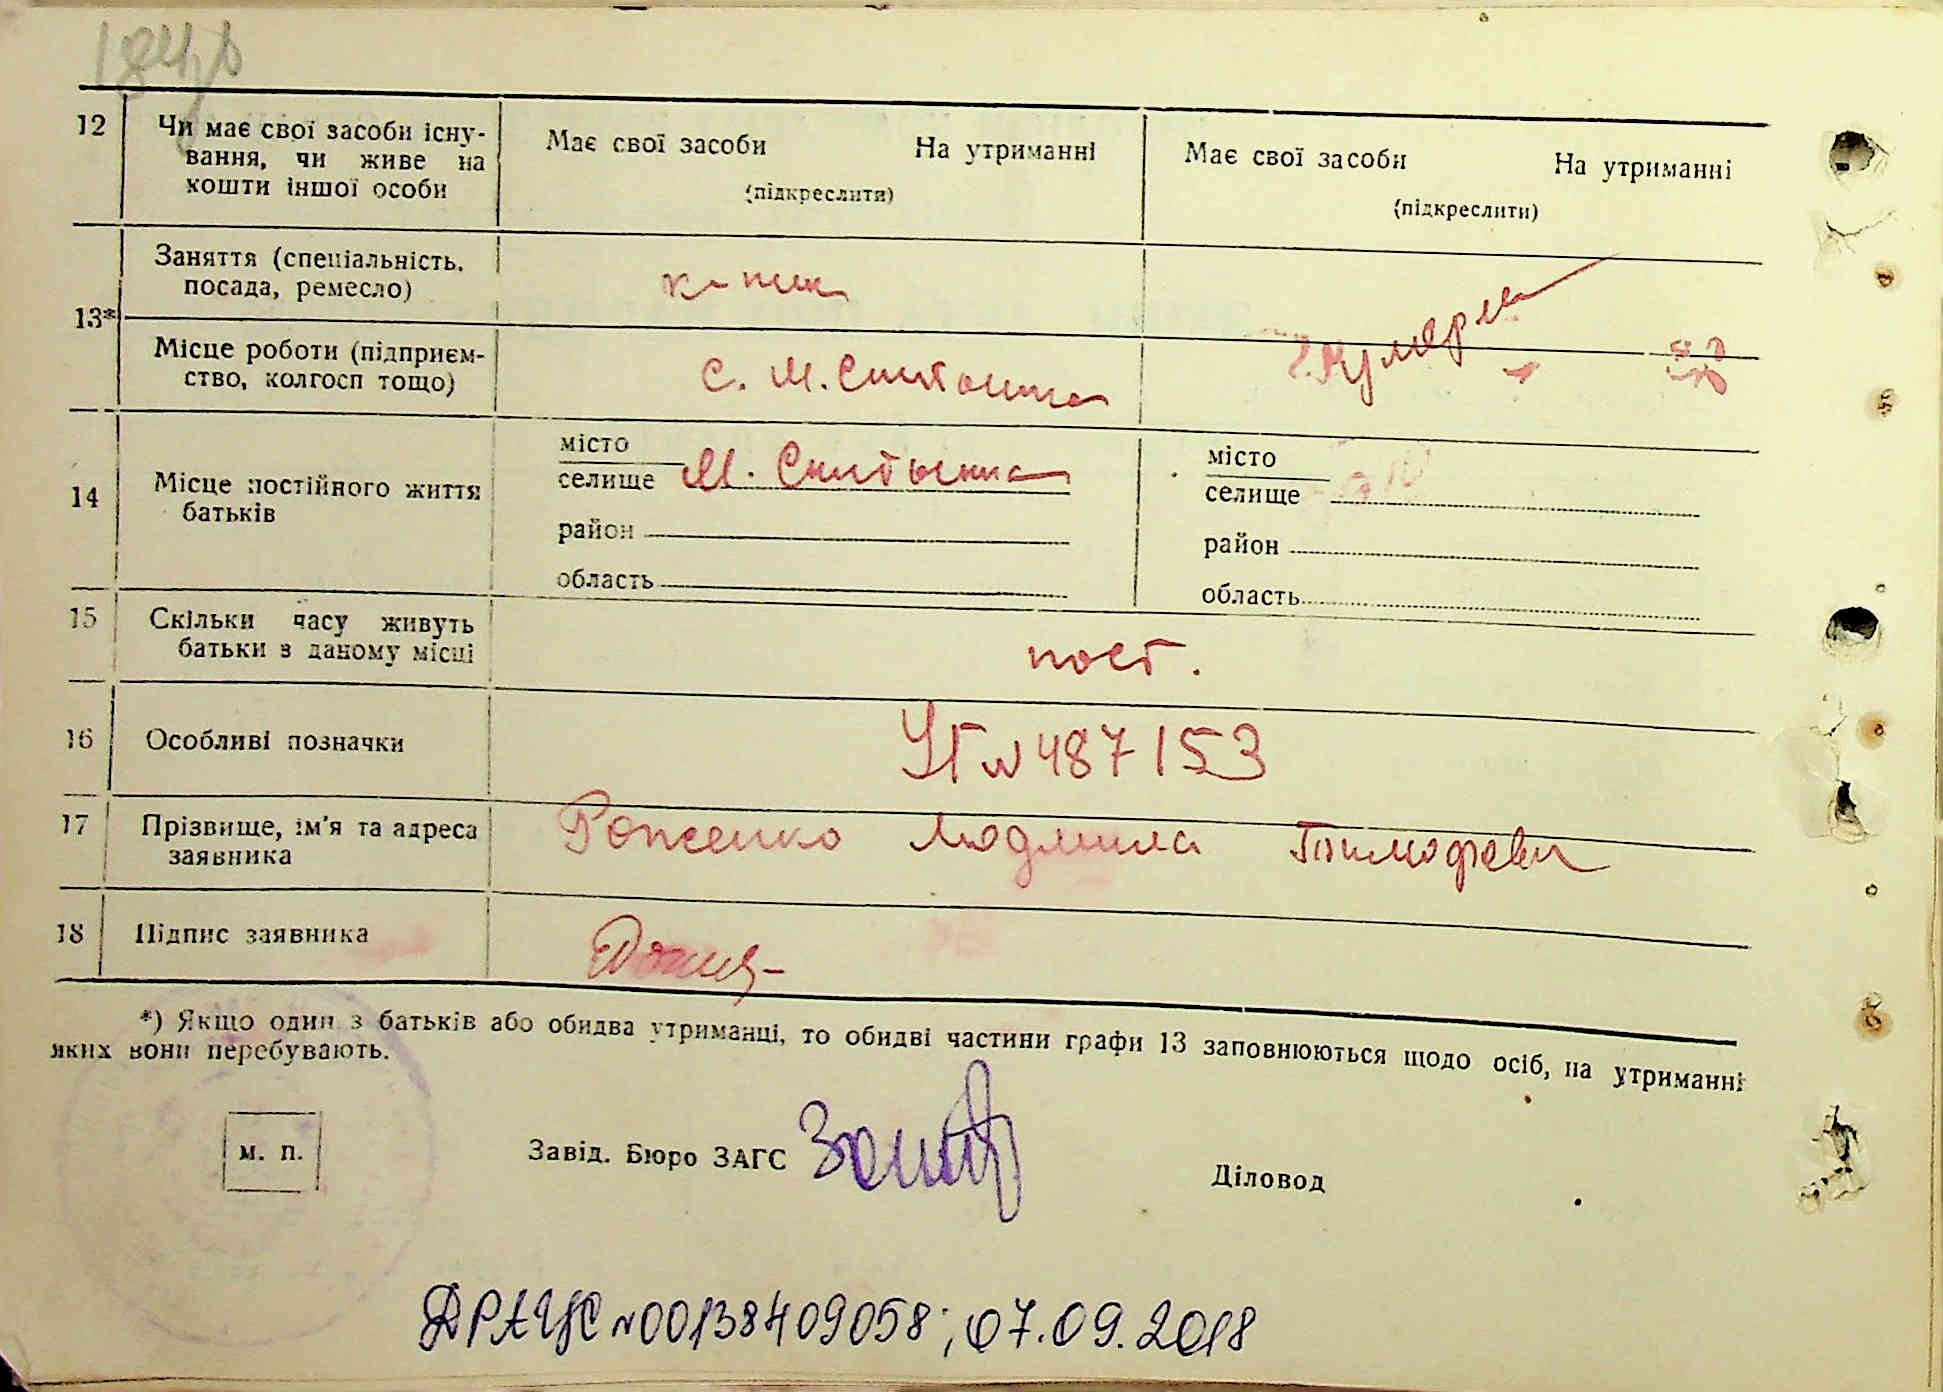 12 Чи має свої засоби існу-
вання, чи живе на
кошти іншої особи
Має свої засоби На утриманні
(підкреслити)
Має свої засоби На утриманні
(підкреслити)
13*
Заняття (спеціальність,
посада, ремесло)
Місце роботи (підприєм-
ство, колгосп тощо)
с. М. Скнитынка
14 Місце постійного життя
батьків
місто
селище М. Скнитынка
район
область
місто
селище
район
область
15 Скільки часу живуть
батьки в даному місці
пост.
16 Особливі позначки
№ 487153
17 Прізвище, ім'я та адреса
заявника
Людмила Тимофеевн
18 Підпис заявника
*) Якщо один з батьків або обидва утриманці, то обидві частини графи 13 заповнюються щодо осіб, на утриманні
яких вони перебувають.
м. п.
Завід. Бюро ЗАГС
Діловод
ДРАЦС №00138409058; 07.09.2018